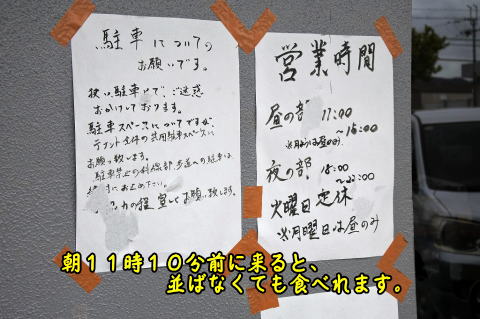 駐車についての
お願いです。
狭い駐車場で、ご迷惑
おかけしております。
駐車スペースについてですが、
テナント全体の共用駐車スペースに
お願い致します。
駐車禁止の斜線部、歩道への駐車は、
お止め下さい。
力の程、宜しくお願い致します。
営業時間
昼の部 11:00
～15:00
夜の部 18:00
～22:00
火曜日定休
※月曜日は昼のみ
朝１１時１０分前に来ると、
並ばなくても食べれます。